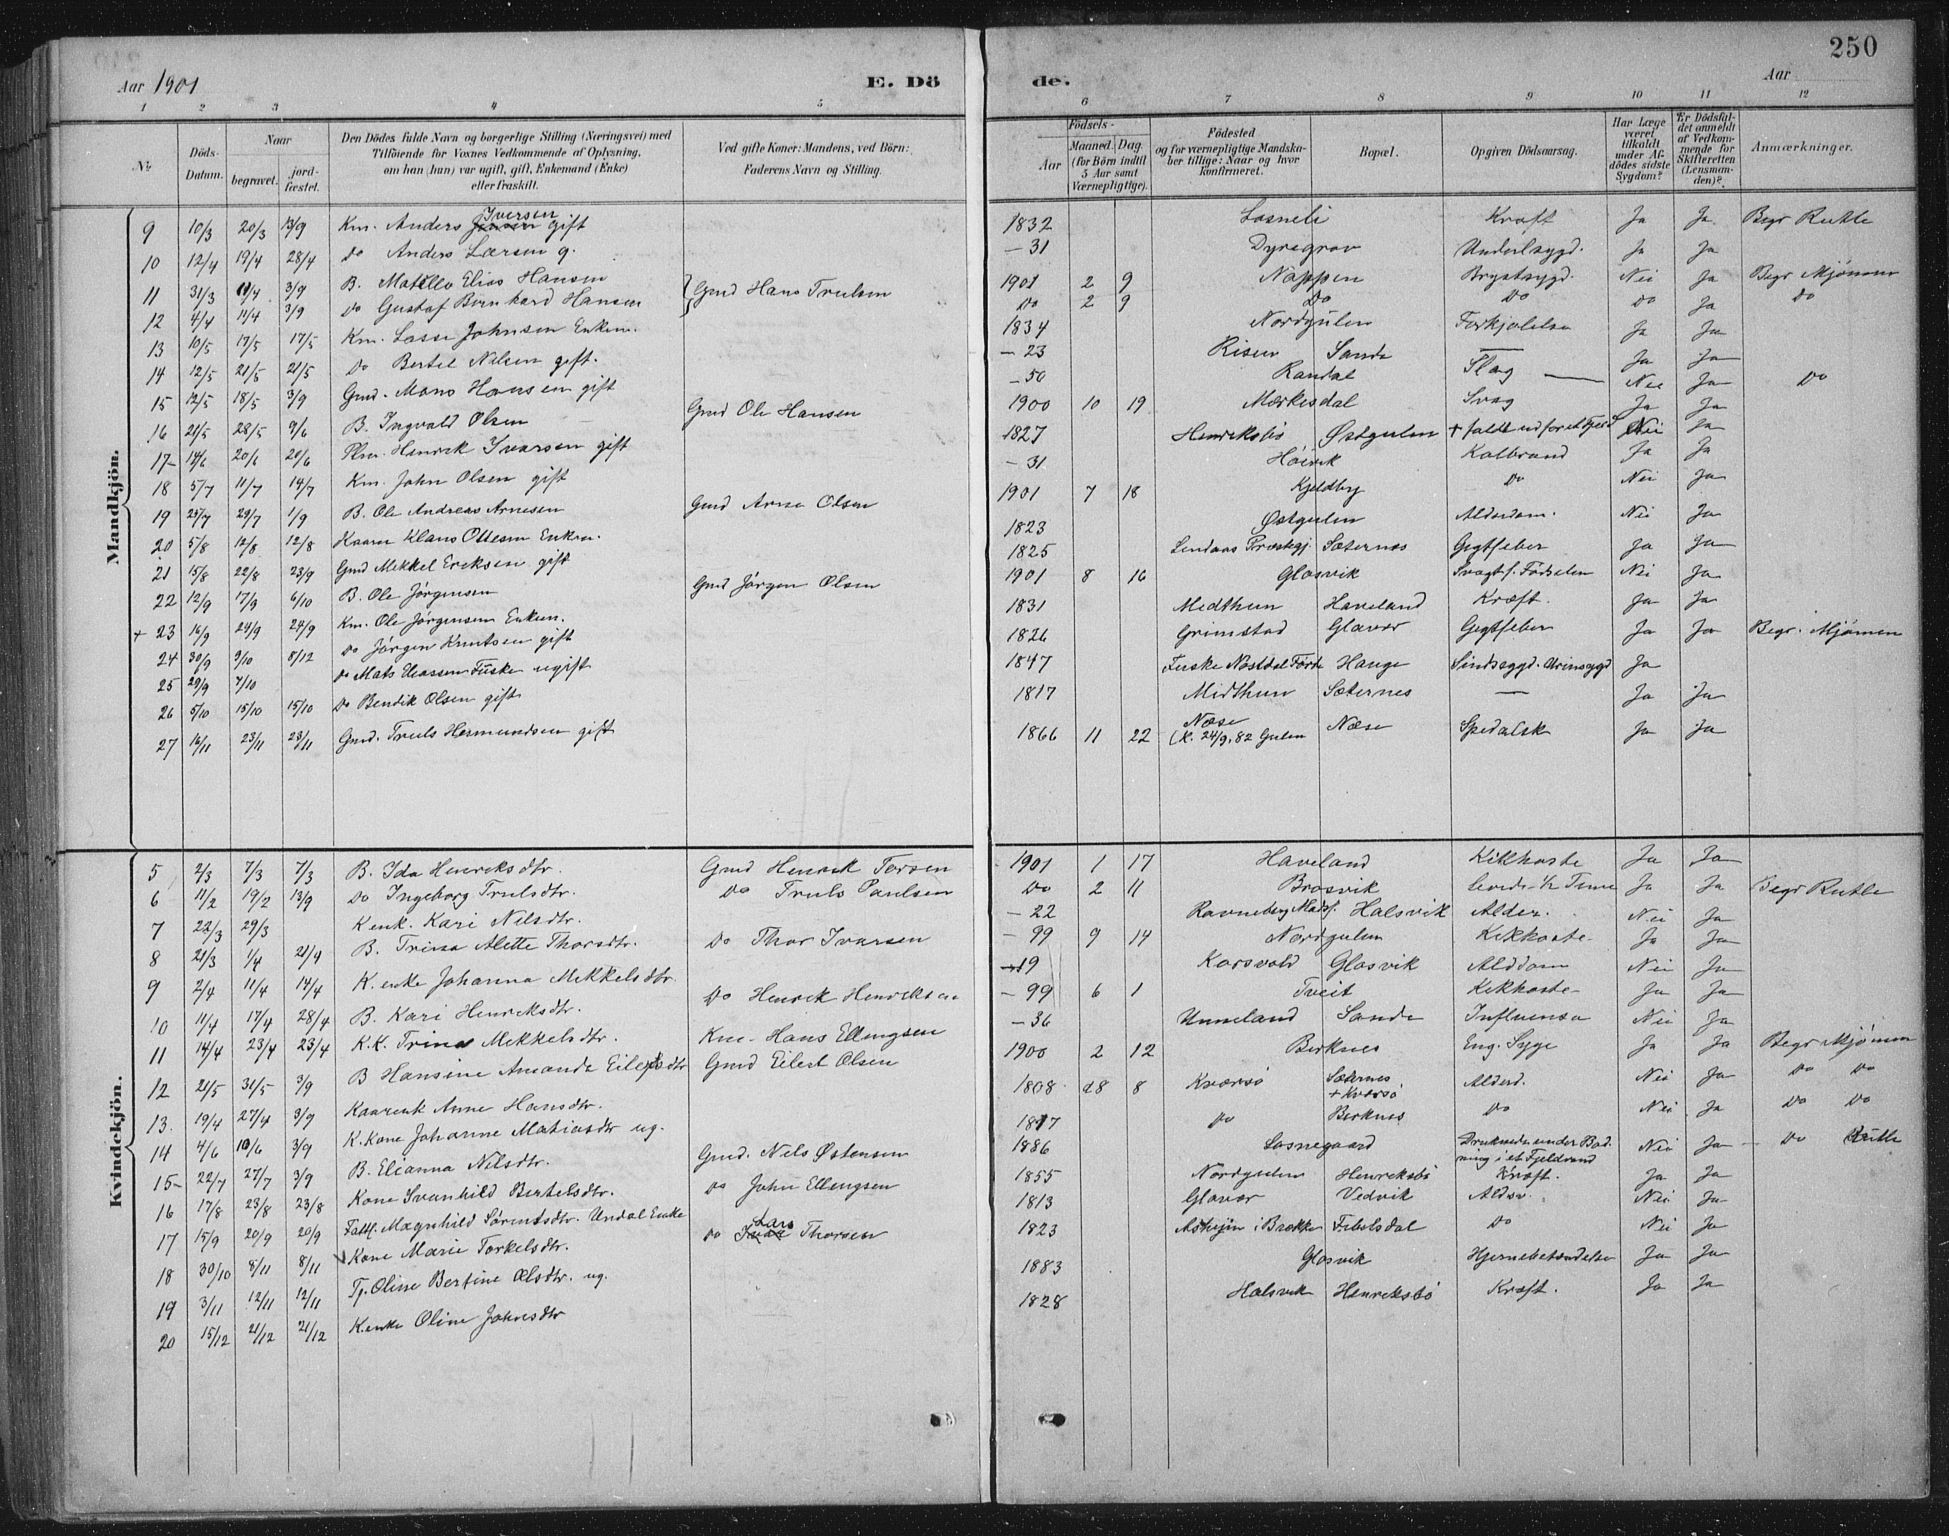 250
Aar 1901 E. Dö de. Aar
1 2 3 4 5 6 7 8 9 10 11 12
№ Döds-Datum. Naar begravet. jordfæstet. Den Dödes fulde Navn og borgerlige Stilling (Næringsvei) med Tilföiende for Voxnes Vedkommende af Oplysning, om han (hun) var ugift, gift, Enkemand (Enke) eller fraskilt. Ved gifte Koner: Mandens, ved Börn: Faderens Navn og Stilling. Födsels- Aar Maaned. Dag. (for Börn indtil 5 Aar samt Værnepligtige). Födested og for værnepligtige Mandskaber tillige: Naar og hvor konfirmeret. Bopæl. Opgiven Dödsaarsag. Har Læge været tilkaldt under Afdödes sidste Sygdom? Er Dödsfaldet anmeldt af Vedkommende for Skifteretten (Lensmanden)? Anmærkninger.
Mandkjön.
9 10/3 20/3 13/9 Km. Anders Iversen gift 1832 Losneli Kræft Ja Ja Begr Rutle
10 12/4 19/4 28/4 do Anders Larsen g. – 31 Dyregrov Underlivsygd. Ja Ja
11 31/3 11/4 3/9 B. Elias Hansen } Gmd Hans Trulsen 1901 2 9 Nappen Brystsygd. Nei Ja Begr Mjömen
12 4/4 11/4 3/9 do Gustaf Bernhard Hansen do 2 9 Do Do do Ja do
13 10/5 17/5 17/5 Km. Lasse Johnsen Enkem. 1834 Nordgulen Forkjølelse Ja Ja
14 12/5 21/5 21/5 do Bertel Nilsen gift. – 23 Risen Sande — Ja Ja
15 12/5 18/5 3/9 Gmd. Mons Hansen gift – 50 Randal Slag — Nei Ja Do
16 21/5 28/5 9/6 B. Ingvald Olsen Gmd Ole Hansen 1900 10 19 Mærkesdal Svag Ja Ja
17 14/6 20/6 20/6 Henrik Ivarsen gift 1827 Henriksbö Østgulen + faldt ud for et Fjeld Nei Ja
18 5/7 11/7 14/7 Km. John Olsen gift – 31 Høivik Kolbrand Ja Ja
19 25/7 29/7 1/9 B. Ole Andreas Arnesen Gmd Arne Olsen 1901 7 18 Kjeldby do Nei Ja
20 5/8 12/8 12/8 Kaarm Klaus Ottesen Enkem. 1823 Østgulen Alderdom. Nei Ja
21 15/8 22/8 23/9 Gmd Mekkel Eriksen gift 1825 Lindaas Præstgj. Sæternes Gigtfeber Ja Ja
22 12/9 17/9 6/10 B. Ole Jörgensen Gmd Jörgen Olsen 1901 8 16 Glosvik Svagt f. Födselen Nei Ja
+ 23 16/9 24/9 24/9 Km. Ole Jörgensen Enkem. 1831 Midthun Haveland Kræft. Ja Ja
24 30/9 9/10 8/12 do Jörgen Knutsen gift 1826 Grimstad Glavær Gigtfeber Ja Ja Begr. Mjömen
25 29/9 7/10 do Mats Eliassen Fuske ugift 1847 Fuske Nostdal Førde Hauge Sindssygd. Urinsygd Ja
26 5/10 15/10 15/10 do Bendik Olsen gift 1817 Midthun Sæternes — Ja Ja
27 16/11 23/11 23/11 Gmd. Truls Hermundsen gift 1866 11 22 Næse (K. 24/9. 82 Gulen Næse Spedalsk Ja Ja
Kvindekjön.
5 2/3 7/3 7/3 B. Ida Henriksdtr. Gmd Henrik Torsen 1901 1 17 Haveland Kikhoste Ja Ja
6 11/2 19/2 13/9 do Ingeborg Trulsdtr. do Truls Paulsen do 2 11 Brosvik levede ½ Time Ja Ja Begr Rutle
7 22/3 29/3 Kenk. Kari Nilsdtr. – 22 Ravneberg Halsvik Alder. Nei Ja
8 21/3 1/4 21/4 B. Trina Alette Thorsdtr. Do Thor Ivarsen – 99 9 14 Nordgulen Kikhoste Ja Ja
9 2/4 11/4 14/4 K.enke Johanna Mekkelsdtr. – 19 Korsvold Glosvik Alddom Nei Ja
10 11/4 17/4 28/4 B. Kari Henriksdtr. Do Henrik Henriksen – 99 6 1 Tveit Kikhoste Ja Ja
11 14/4 23/4 23/4 K.K. Trina Mekkelsdtr. Km. Hans Ellingsen – 36 Unneland Sande Influensa Nei Ja
12 21/5 31/5 3/9 B Hansine Amanda Eilertsdtr Gmd Eilert Olsen 1900 2 12 Birknes Eng. Syge Ja Ja Begr Mjömen
13. 19/4 27/4 3/9 Kaarenk Anne Hansdtr. 1808 8 8 Kversö Sæternes + Kversö Alderd. Nei Ja do do
14 4/6 10/6 3/9 K.Kone Johanne Matiasdtr ug. 1817 do Birknes do Nei Ja do do
15 22/7 27/7 3/9 B. Elianna Nilsdtr. Gmd. Nils Østensen 1886 Losnegaard Druknede under Badning i et Fjeldvand Nei Ja do Rutle
16 17/8 23/8 23/8 Kone Svanhild Bertelsdtr. do John Ellingsen 1855 Nordgulen Henriksbö Kræft. Ja Ja
17 15/9 20/9 20/9 Fattf. Magnhild Sørensdtr. Undal Enke 1813 Glavær Vedvik Aldsv. Nei Ja
18 30/10 8/11 8/11 Kone Marie Torkelsdtr. do Lars Thorsen 1823 i Brække do Nei Ja
19 3/11 12/11 12/11 Tp. Oline Bertine Olsdtr. ug. 1883 Glosvik Hjernebetændelse Ja Ja
20 15/12 21/12 21/12 K.enke Oline Johnsdtr 1828 Halsvik Henriksbö Kræft. Ja Ja